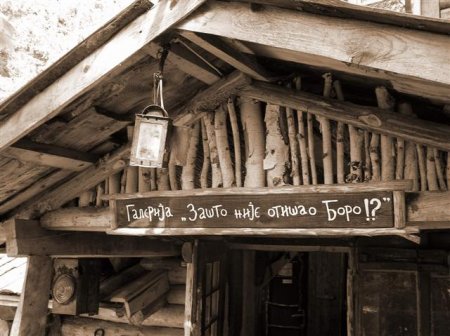 Галерија „Зашто није отишао Боро!?"